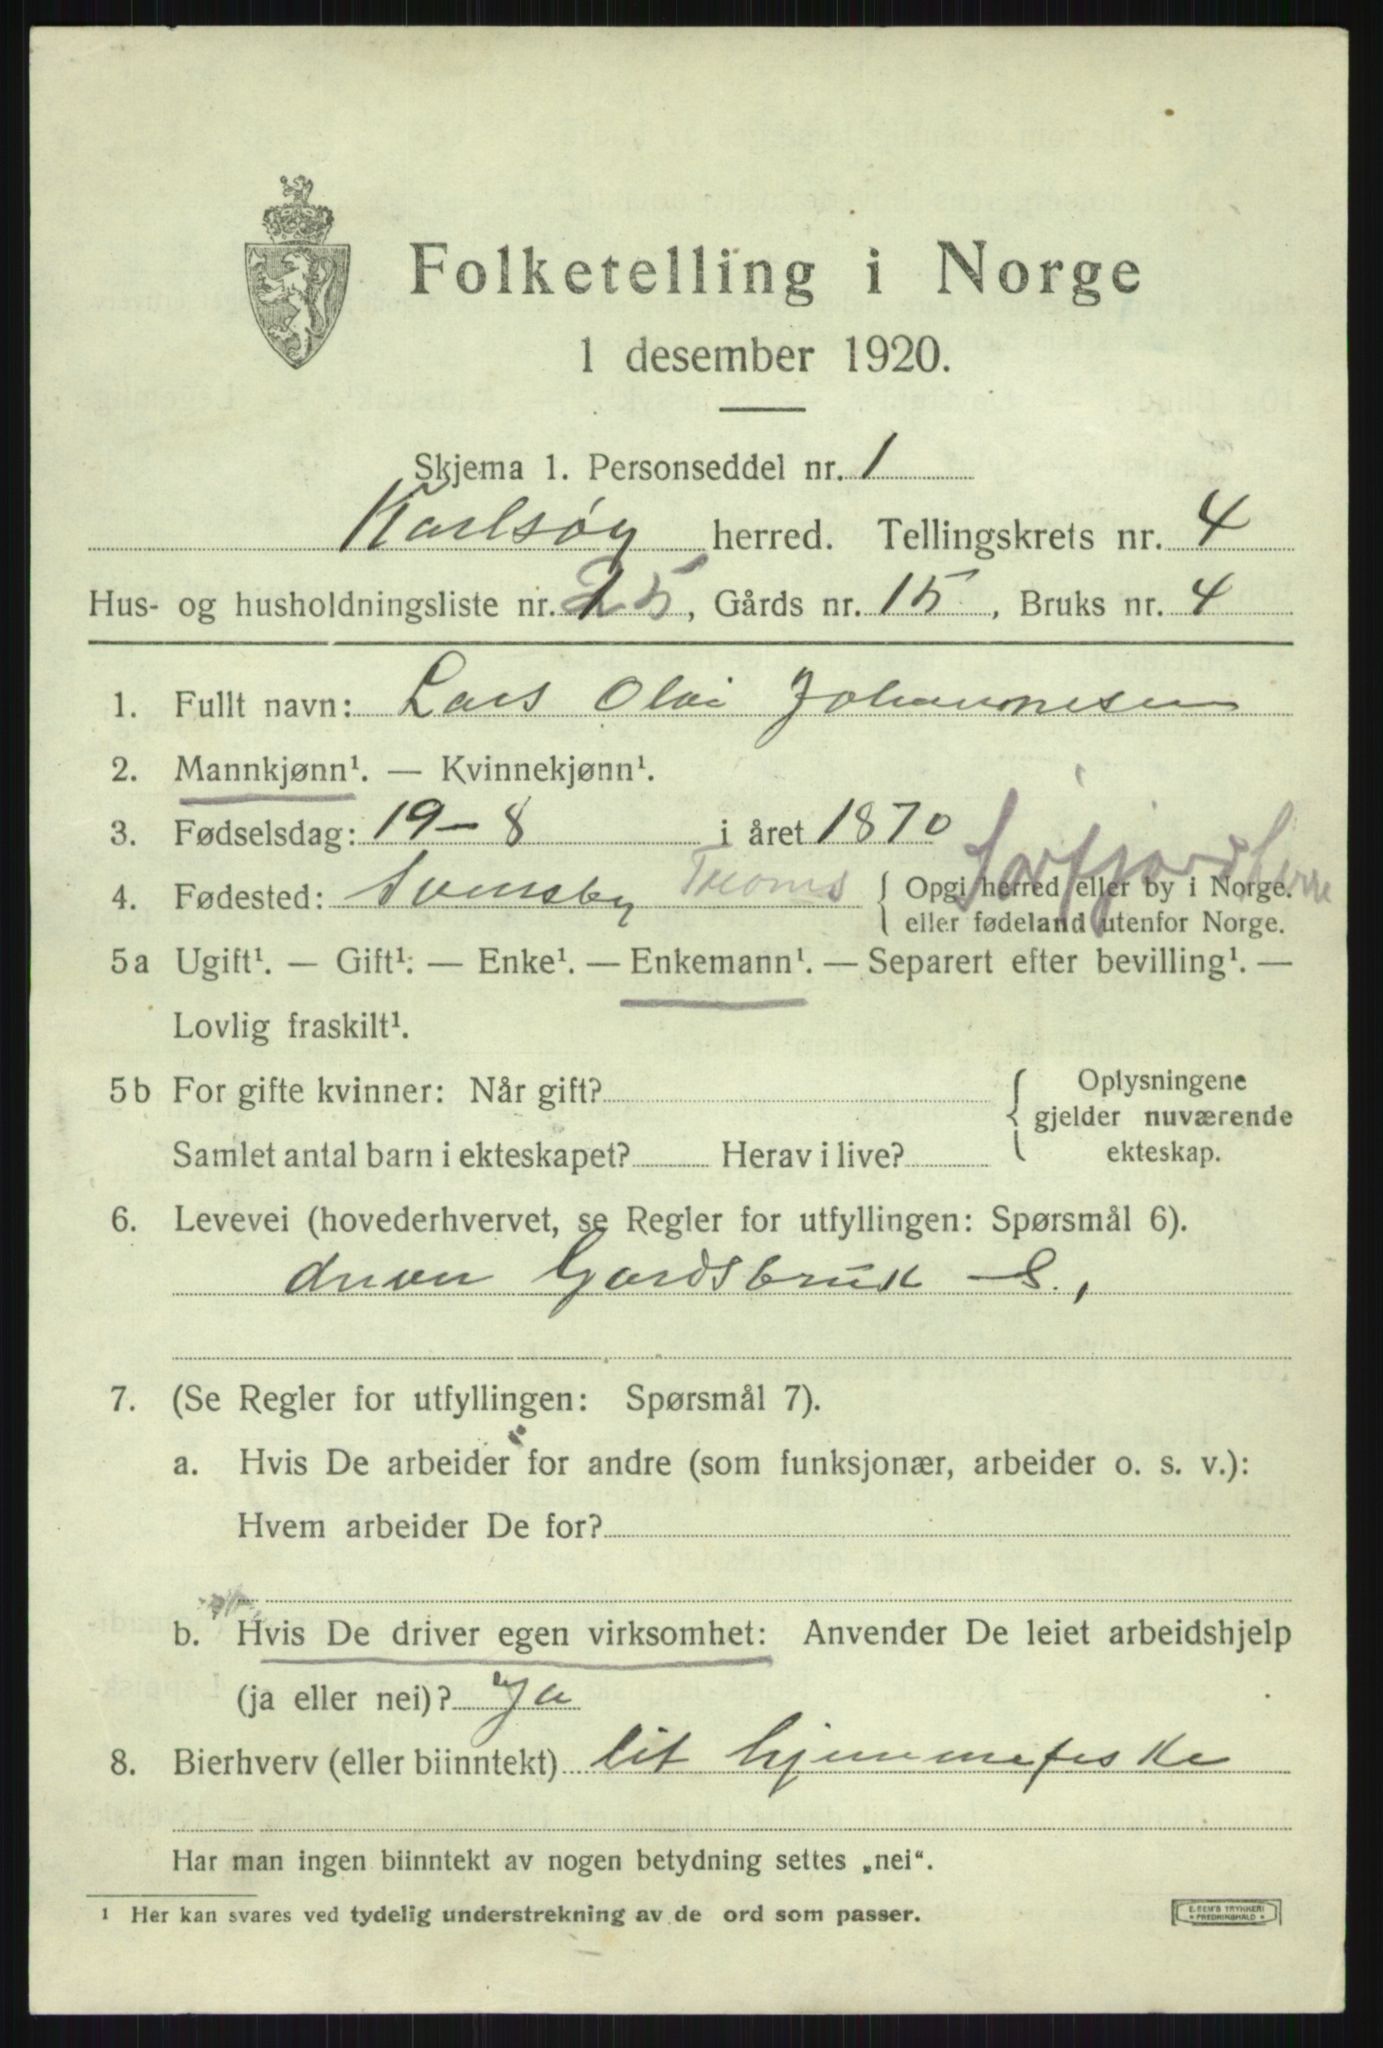 Folketelling i Norge
1 desember 1920.
Skjema 1. Personseddel nr. 1
Karlsøy herred. Tellingskrets nr. 4
Hus- og husholdningsliste nr. 25, Gårds nr. 15, Bruks nr. 4
1. Fullt navn: Lars Olai Johannesen
2. Mannkjønn¹. — Kvinnekjønn¹.
3. Fødselsdag: 19-8 i året 1870
Sørfjord Herre
4. Fødested: Svensby Troms { Opgi herred eller by i Norge.
eller fødeland utenfor Norge.
5a Ugift¹. — Gift¹. — Enke¹. — Enkemann¹. — Separert efter bevilling¹. —
Lovlig fraskilt¹.
5b For gifte kvinner: Når gift? { Oplysningene
gjelder nuværende
Samlet antal barn i ekteskapet? Herav i live? ekteskap.
6. Levevei (hovederhvervet, se Regler for utfyllingen: Spørsmål 6).
driver Gardsbruk S.,
7. (Se Regler for utfyllingen: Spørsmål 7).
a. Hvis De arbeider for andre (som funksjonær, arbeider o. s. v.):
Hvem arbeider De for?
b. Hvis De driver egen virksomhet: Anvender De leiet arbeidshjelp
(ja eller nei)? Ja
8. Bierhverv (eller biinntekt) lit hjemmefiske
Har man ingen biinntekt av nogen betydning settes „nei“.
¹ Her kan svares ved tydelig understrekning av de ord som passer.
E. SEM'S TRYKKERI
• FREDRIKSHALD •